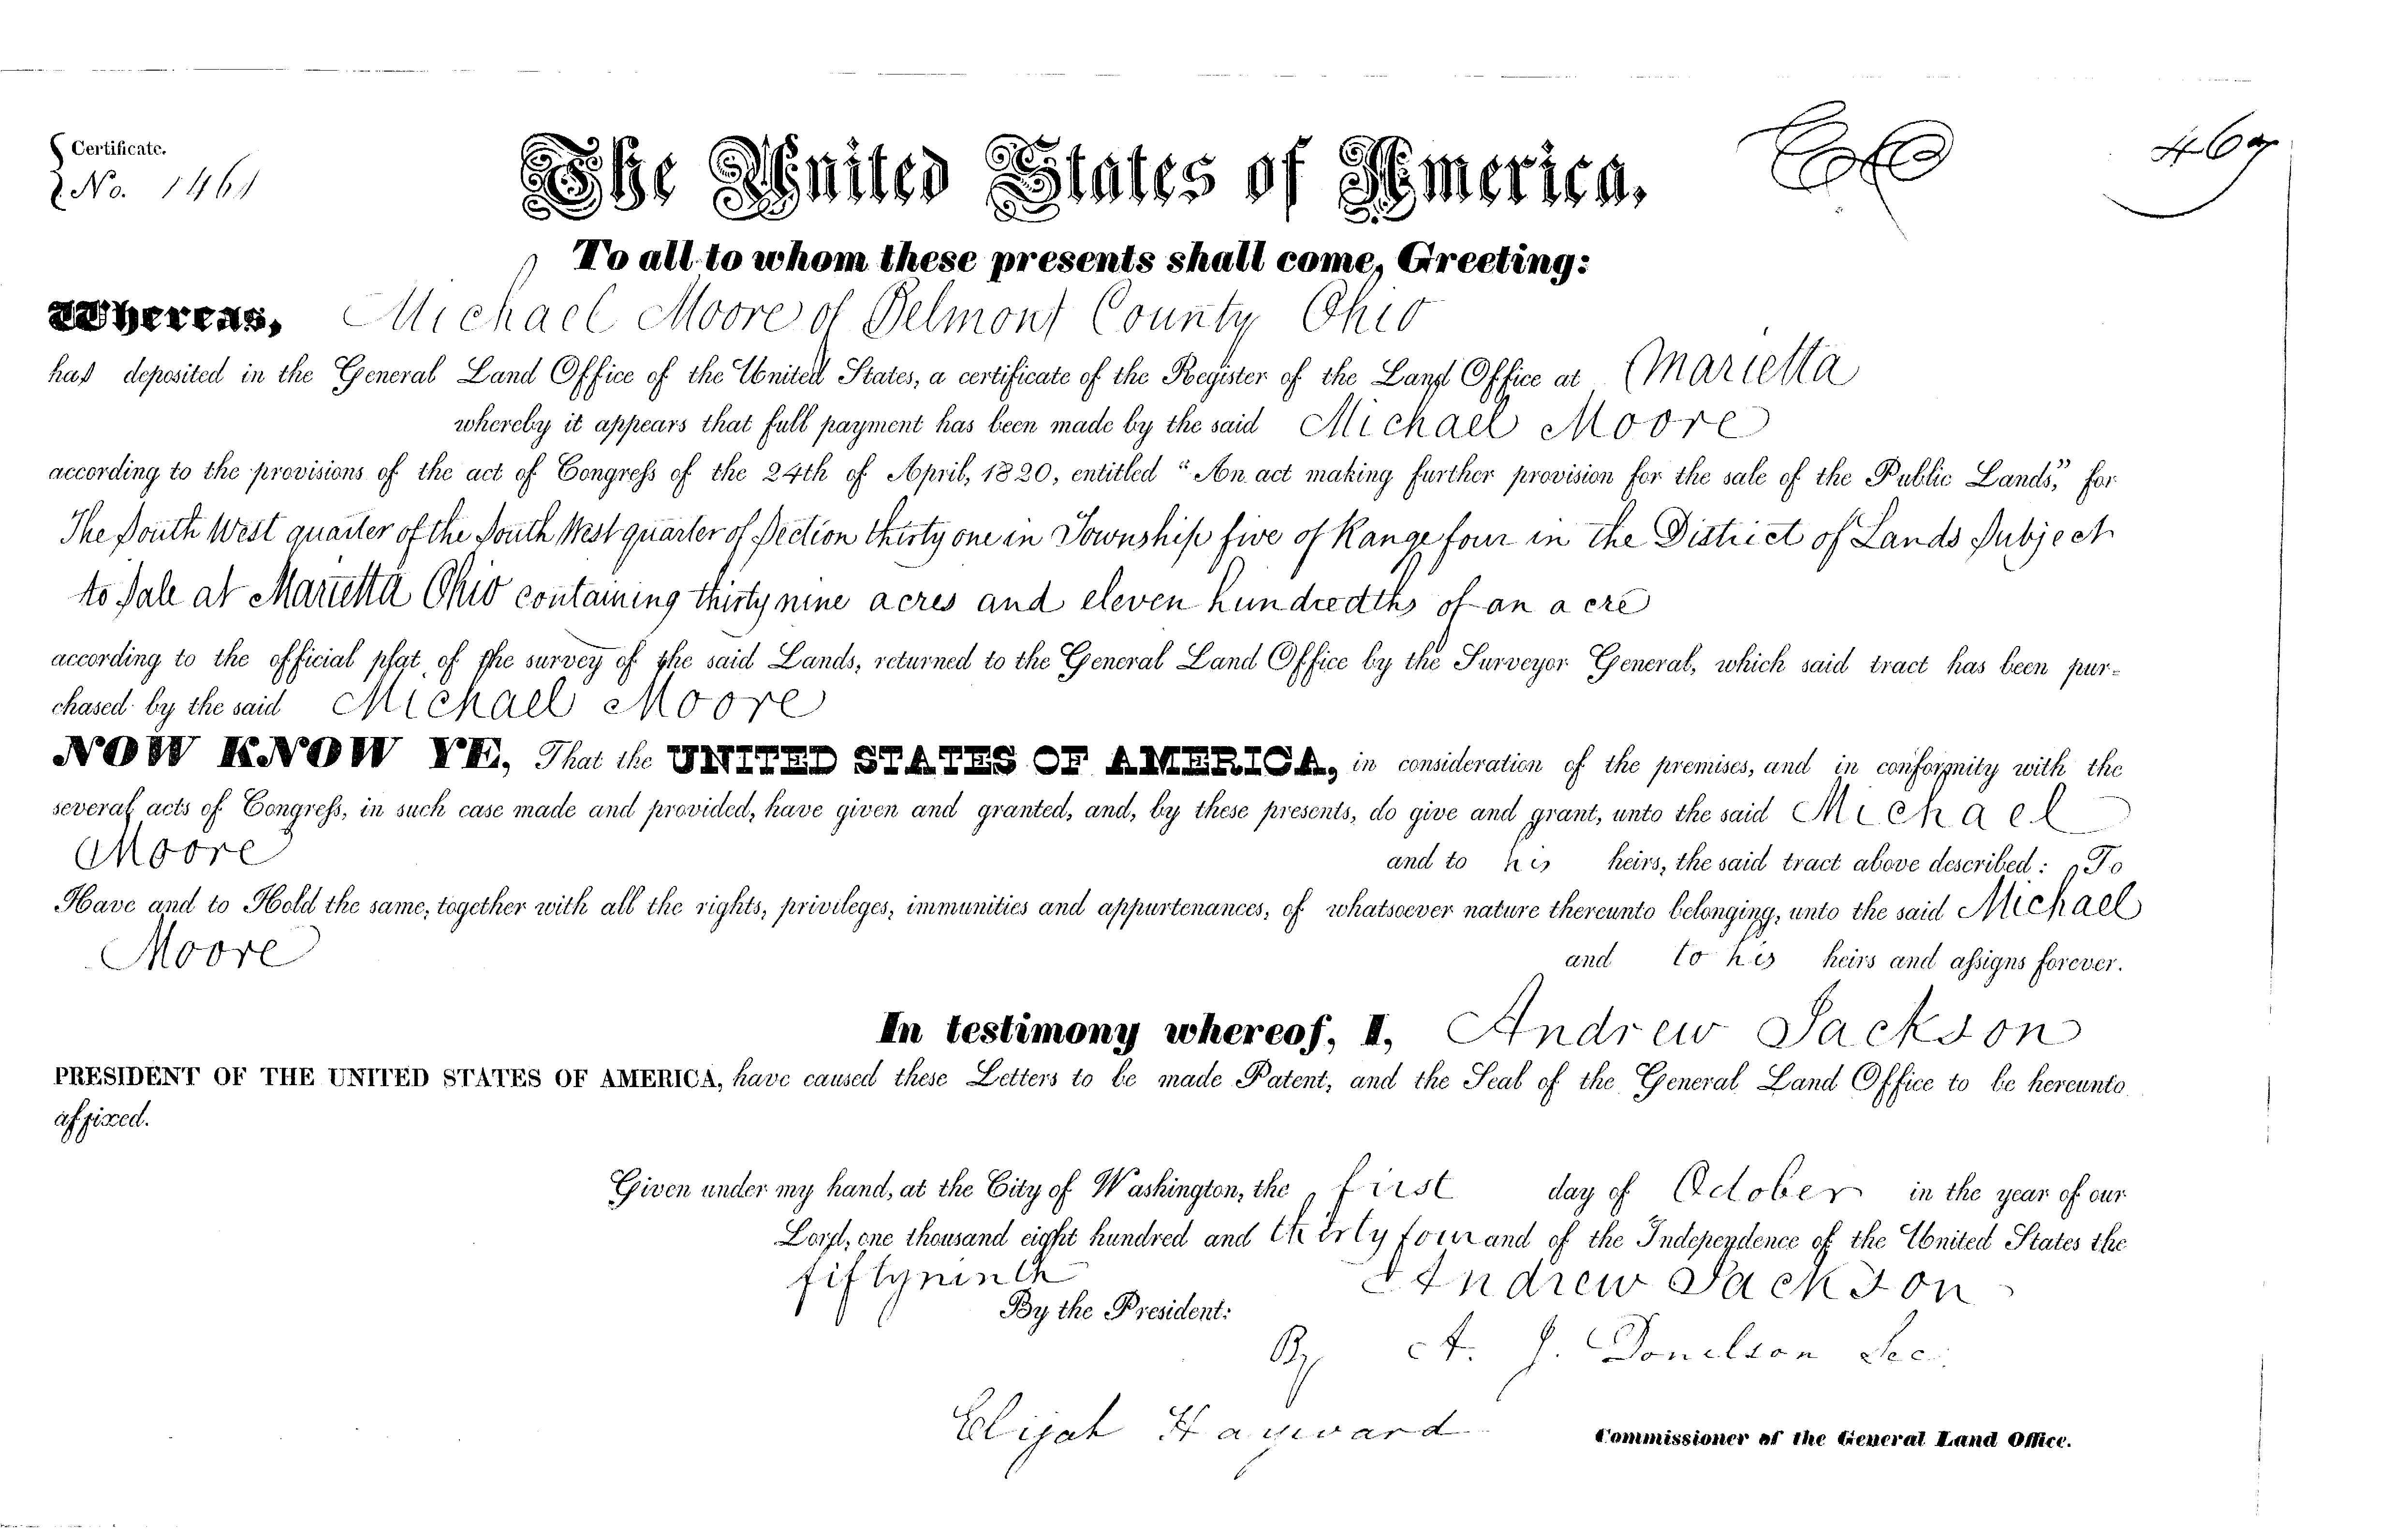 Certificate.
No. 1461
The United States of America,
To all to whom these presents shall come, Greeting:
Whereas, Michael Moore of Belmont County Ohio
has deposited in the General Land Office of the United States, a certificate of the Register of the Land Office at Marietta
whereby it appears that full payment has been made by the said Michael Moore
according to the provisions of the act of Congress of the 24th of April, 1820, entitled "An act making further provision for the sale of the Public Lands," for
The South West quarter of the South West quarter of Section thirty one in Township five of Range four in the District of Lands Subject
to Sale at Marietta Ohio containing thirty nine acres and eleven hundredths of an acre
according to the official plat of the survey of the said Lands, returned to the General Land Office by the Surveyor General, which said tract has been pur-
chased by the said Michael Moore
NOW KNOW YE, That the UNITED STATES OF AMERICA, in consideration of the premises, and in conformity with the
several acts of Congress, in such case made and provided, have given and granted, and, by these presents, do give and grant, unto the said Michael
Moore and to his heirs, the said tract above described: To
Have and to Hold the same, together with all the rights, privileges, immunities and appurtenances, of whatsoever nature thereunto belonging, unto the said Michael
Moore and to his heirs and assigns forever.
In testimony whereof, I, Andrew Jackson
PRESIDENT OF THE UNITED STATES OF AMERICA, have caused these Letters to be made Patent, and the Seal of the General Land Office to be hereunto
affixed.
Given under my hand, at the City of Washington, the first day of October in the year of our
Lord, one thousand eight hundred and thirty four and of the Independence of the United States the
fifty ninth Andrew Jackson
By the President:
By A. J. Donelson Sec.
Elijah Hayward Commissioner of the General Land Office.